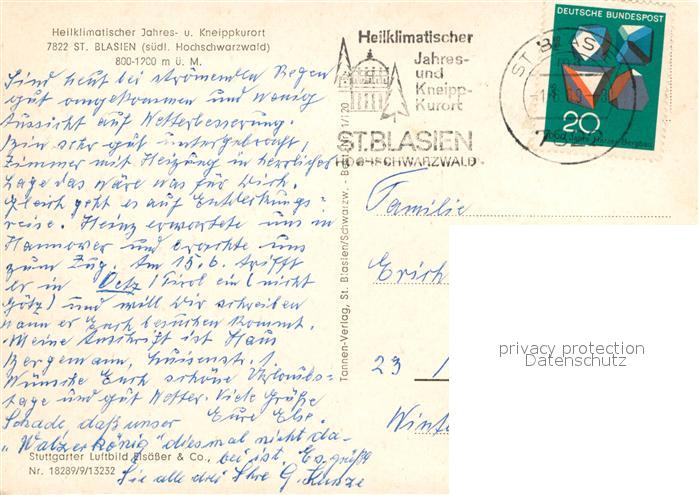 Heilklimatischer Jahres- u. Kneippkurort
7822 ST. BLASIEN (südl. Hochschwarzwald)
800-1200 m ü. M.
Sind heut bei strömenden Regen
gut angekommen und wenig
Aussicht auf Wetterbesserung.
Bin sehr gut untergebracht,
Zimmer mit Heizung in herrlicher
Lage das wäre was für Dich.
Gleich geht es auf Entdeckungs-
reise. Heinz erwartete uns in
Hannover und brachte uns
zum Zug. Am 15.6. trifft
er in Oetz/Tirol ein (nicht
Götz) und will Dir schreiben
wann er Euch besuchen kommt.
Meine Anschrift ist Haus
Bergemann, Luisenstr. 1.
Wünsche Euch schöne Urlaubs-
tage und gut Wetter. Viele Grüße
Schade, daß unser Eure Else.
"Walzerkönig" diesmal nicht da-
bei ist. Es grüßt
Sie alle drei Ihre G. Kunze
Stuttgarter Luftbild Elsäßer & Co.,
Nr. 18289/9/13232
Tannen-Verlag, St. Blasien/Schwarzw.
Heilklimatischer
Jahres-
und
Kneipp-
Kurort
ST. BLASIEN
HOCHSCHWARZWALD
ST. BLASIEN
7822
DEUTSCHE BUNDESPOST
20
Familie
Erich
23
Winte
privacy protection
Datenschutz